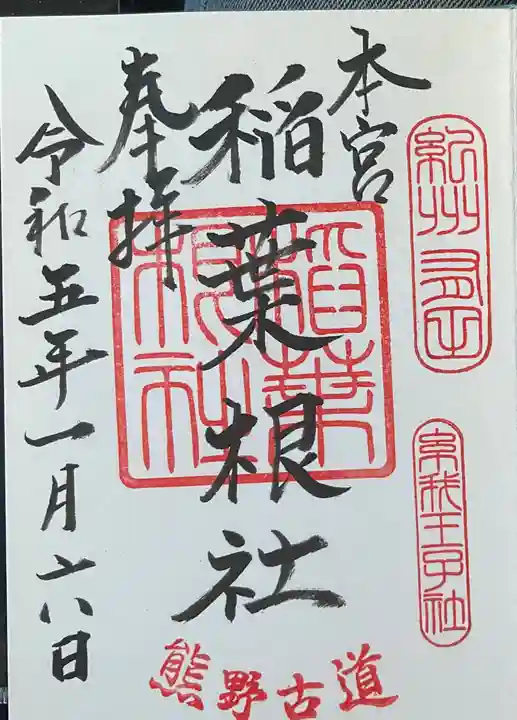 紀州有田
糸我王子社
本宮
稲葉根社
奉拝
令和五年一月六日
稲葉根社
熊野古道